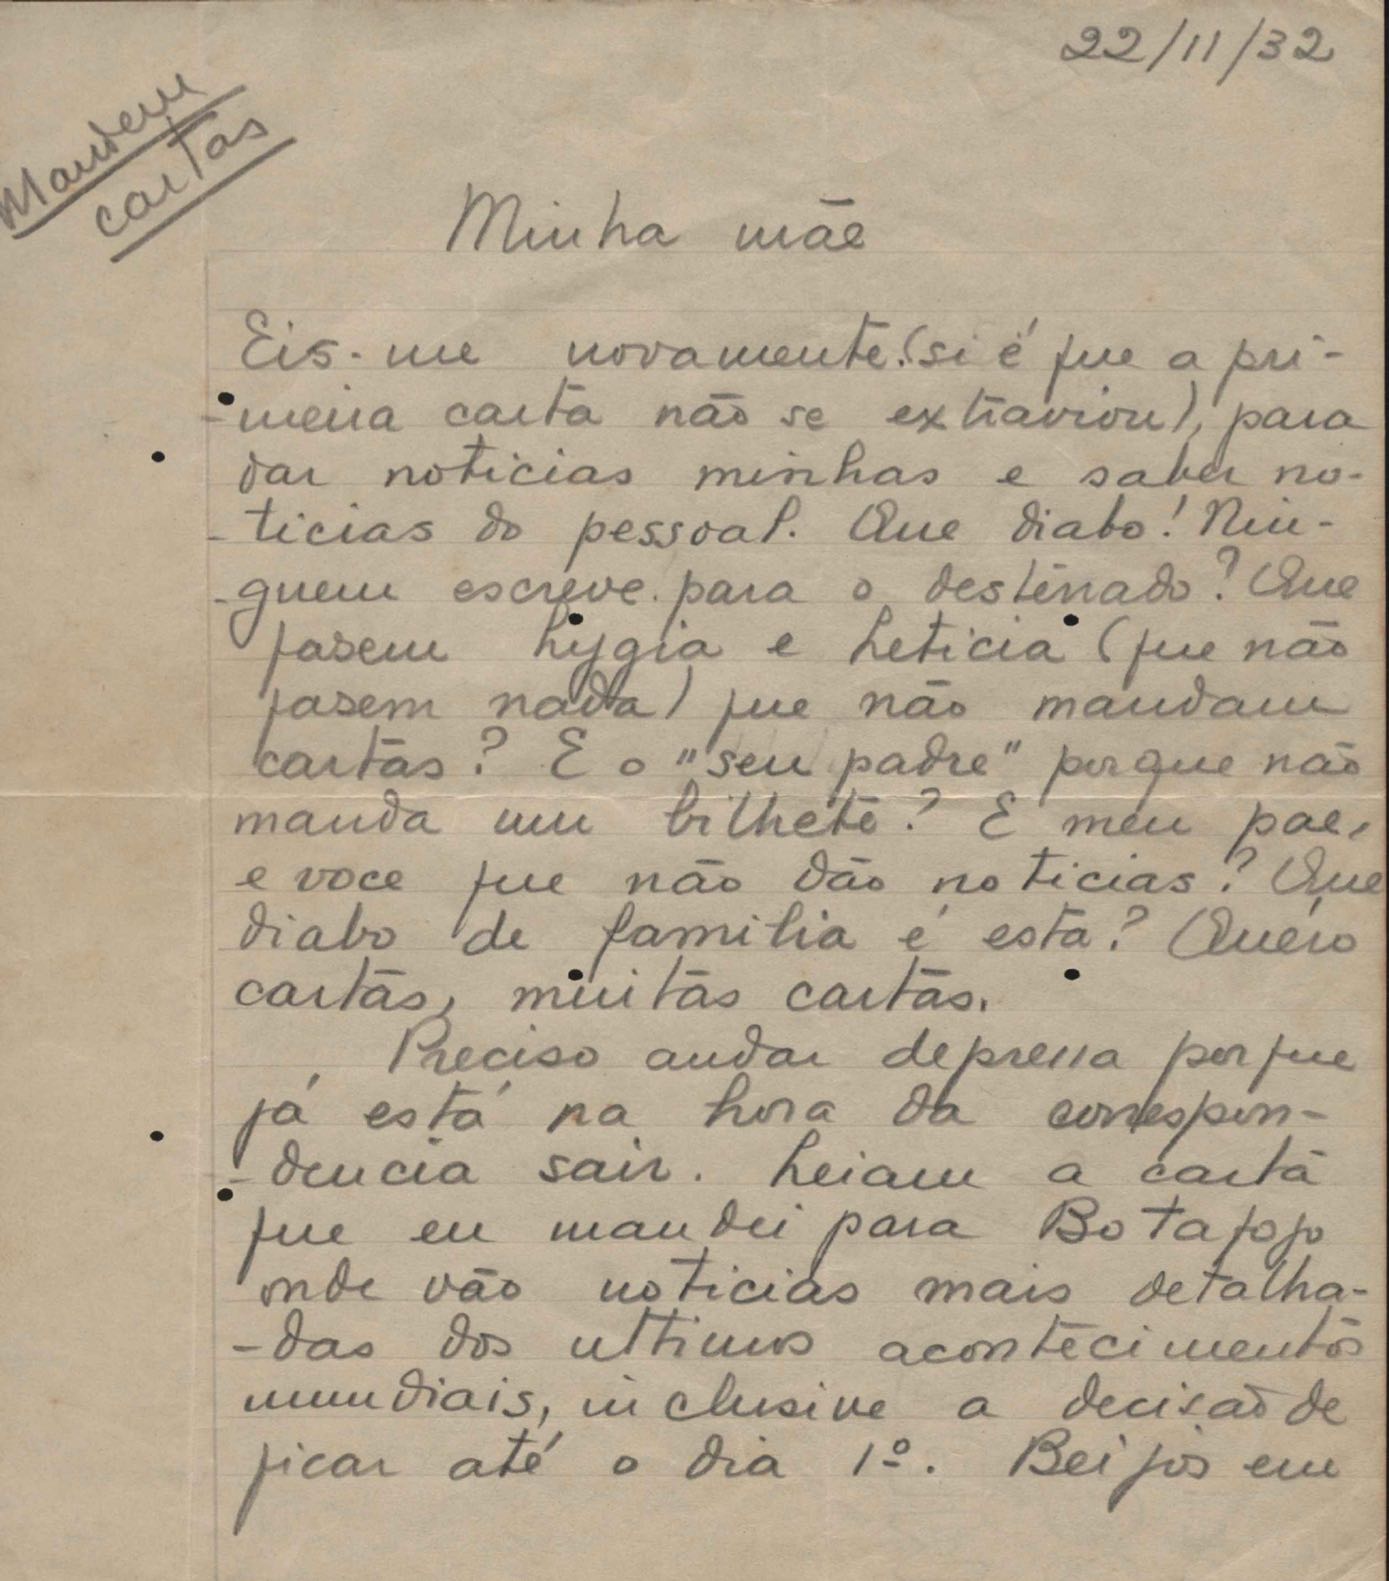 22/11/32
Mandem
cartas
Minha mãe
Eis-me novamente (si é que a pri-
-meira carta não se extraviou), para
dar noticias minhas e saber no-
-ticias do pessoal. Que diabo! Nin-
-guem escreve para o desterrado? Que
fasem Lygia e Leticia (que não
fasem nada) que não mandam
cartas? E o "seu padre" porque não
manda um bilhete? E meu pae,
e voce que não dão noticias? Que
diabo de familia é esta? Quéro
cartas, muitas cartas.
Preciso andar depressa porque
já está na hora da correspon-
-dencia sair. Leiam a carta
que eu mandei para Botafogo
onde vão noticias mais detalha-
-das dos ultimos acontecimentos
mundiais, inclusive a decisão de
ficar até o dia 1º. Beijos em